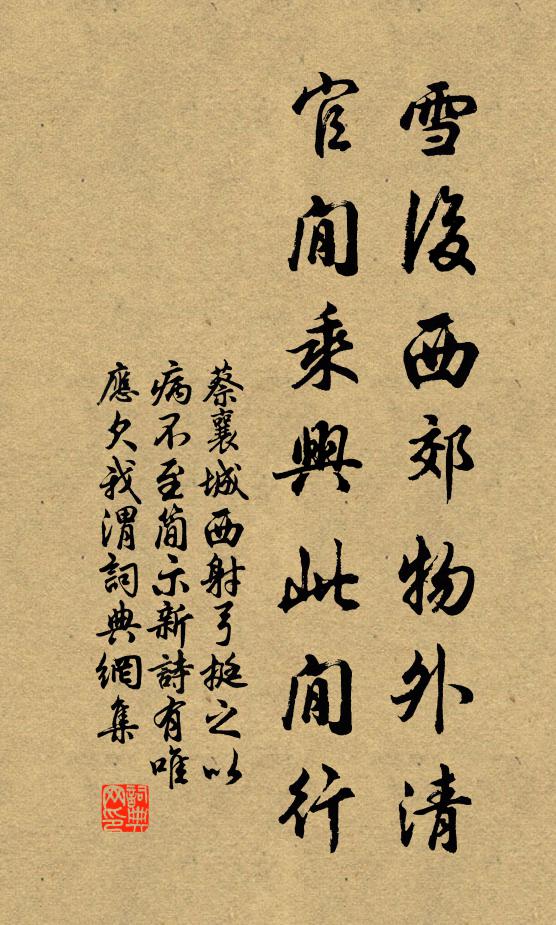 雪後西郊物外清
官閒乘興此閒行
蔡襄城西射弓挺之以
病不至簡示新詩有唯
應欠我渭詞典網集
詞典
网印